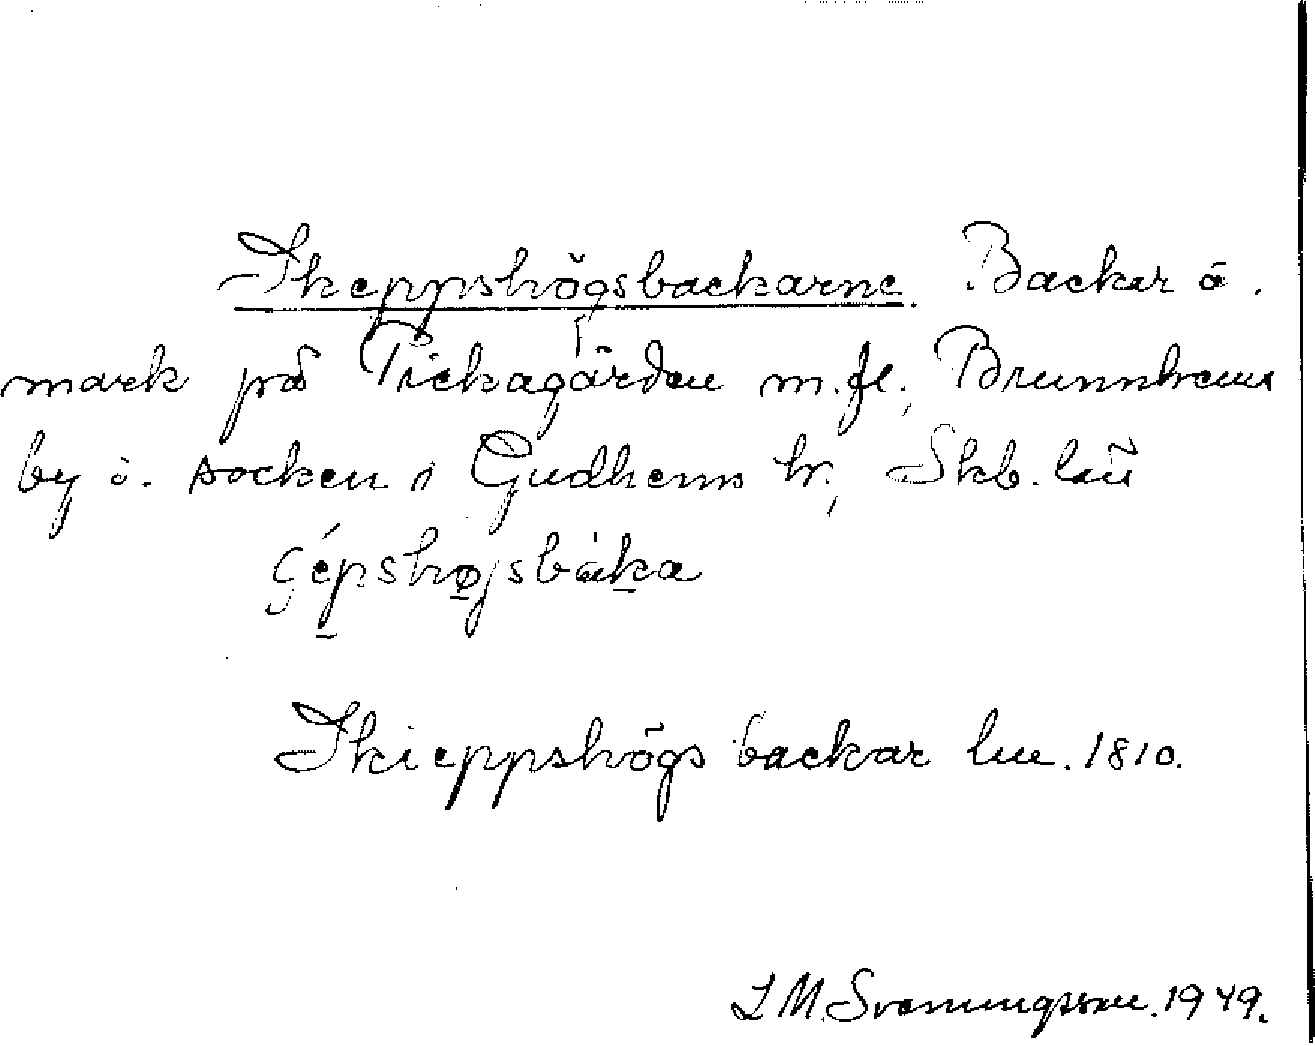 Skeppshögsbackarne. Backar o.
mark på Pickagården m.fl., Brunnhems
by o. socken i Gudhems hr, Skb. län
Skieppshögs backar lm. 1810.
L M. Svenungsson. 1949.